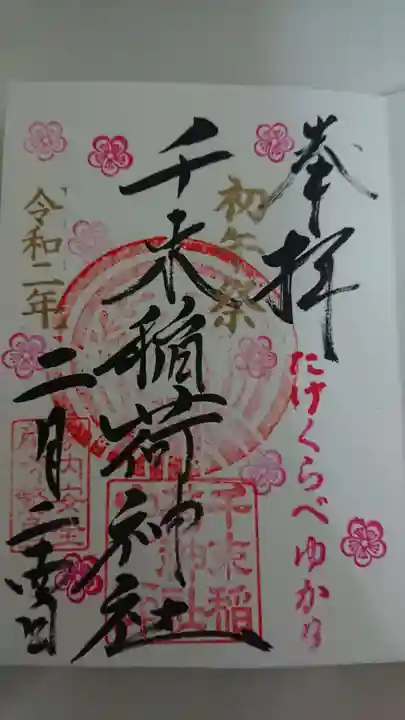 奉拝
たけくらべゆかり
初午祭
千束稲荷神社
千束稲
荷神社
令和二年
二月二十四日